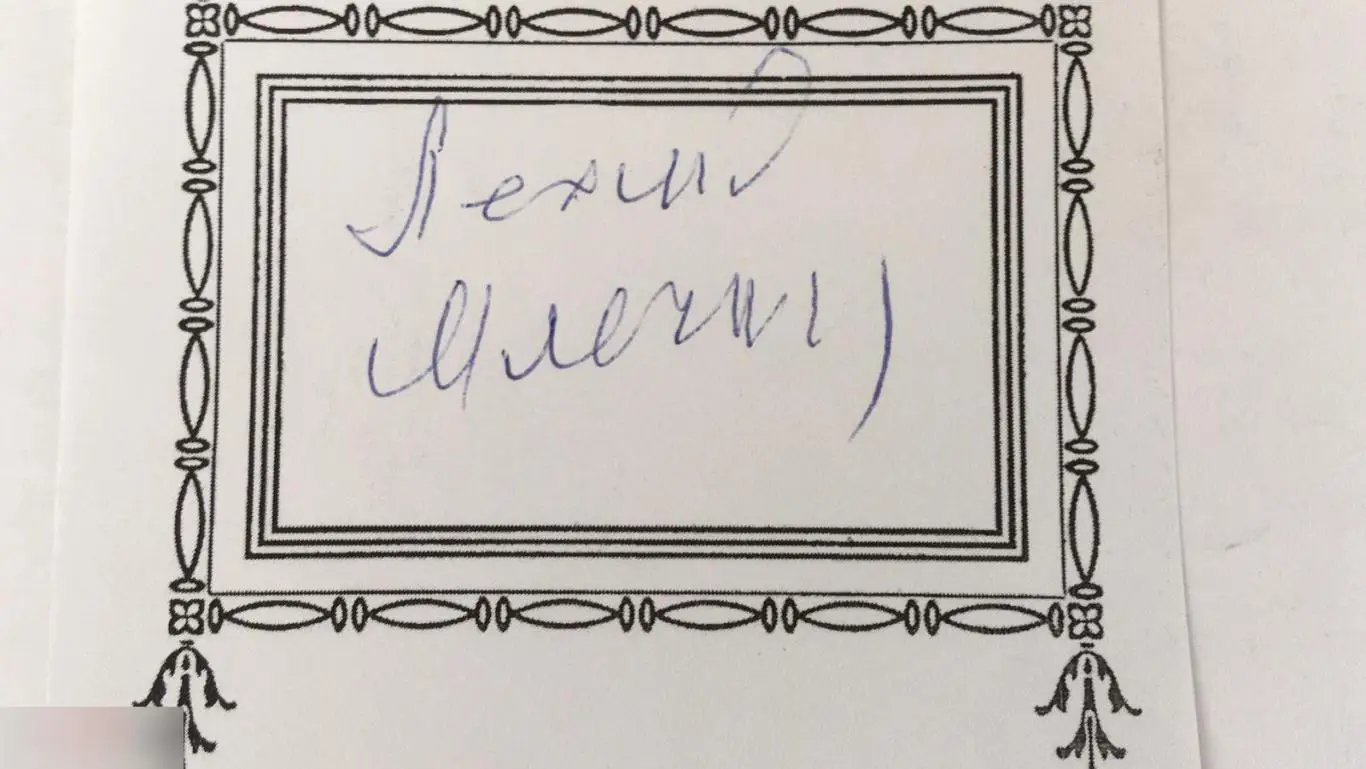 Леонид
Млечин